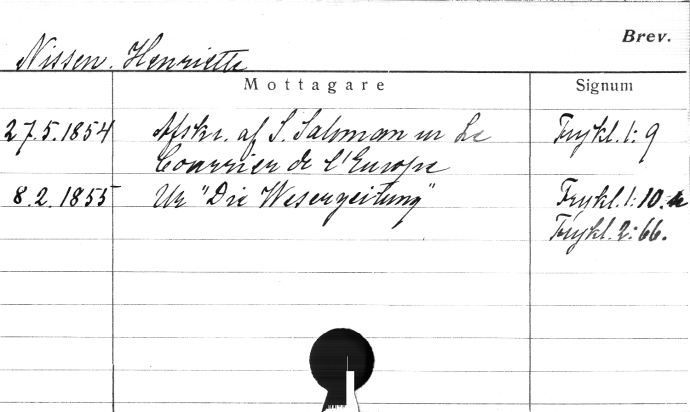 Brev.
Nissen. Henriette
Mottagare Signum
27.5.1854 Afskr. af S. Saloman ur Le Frykl. 1:9
Courrier de l'Europe
8.2.1855 Ur "Die Weserzeitung" Frykl. 1:10.
Frykl. 2:66.